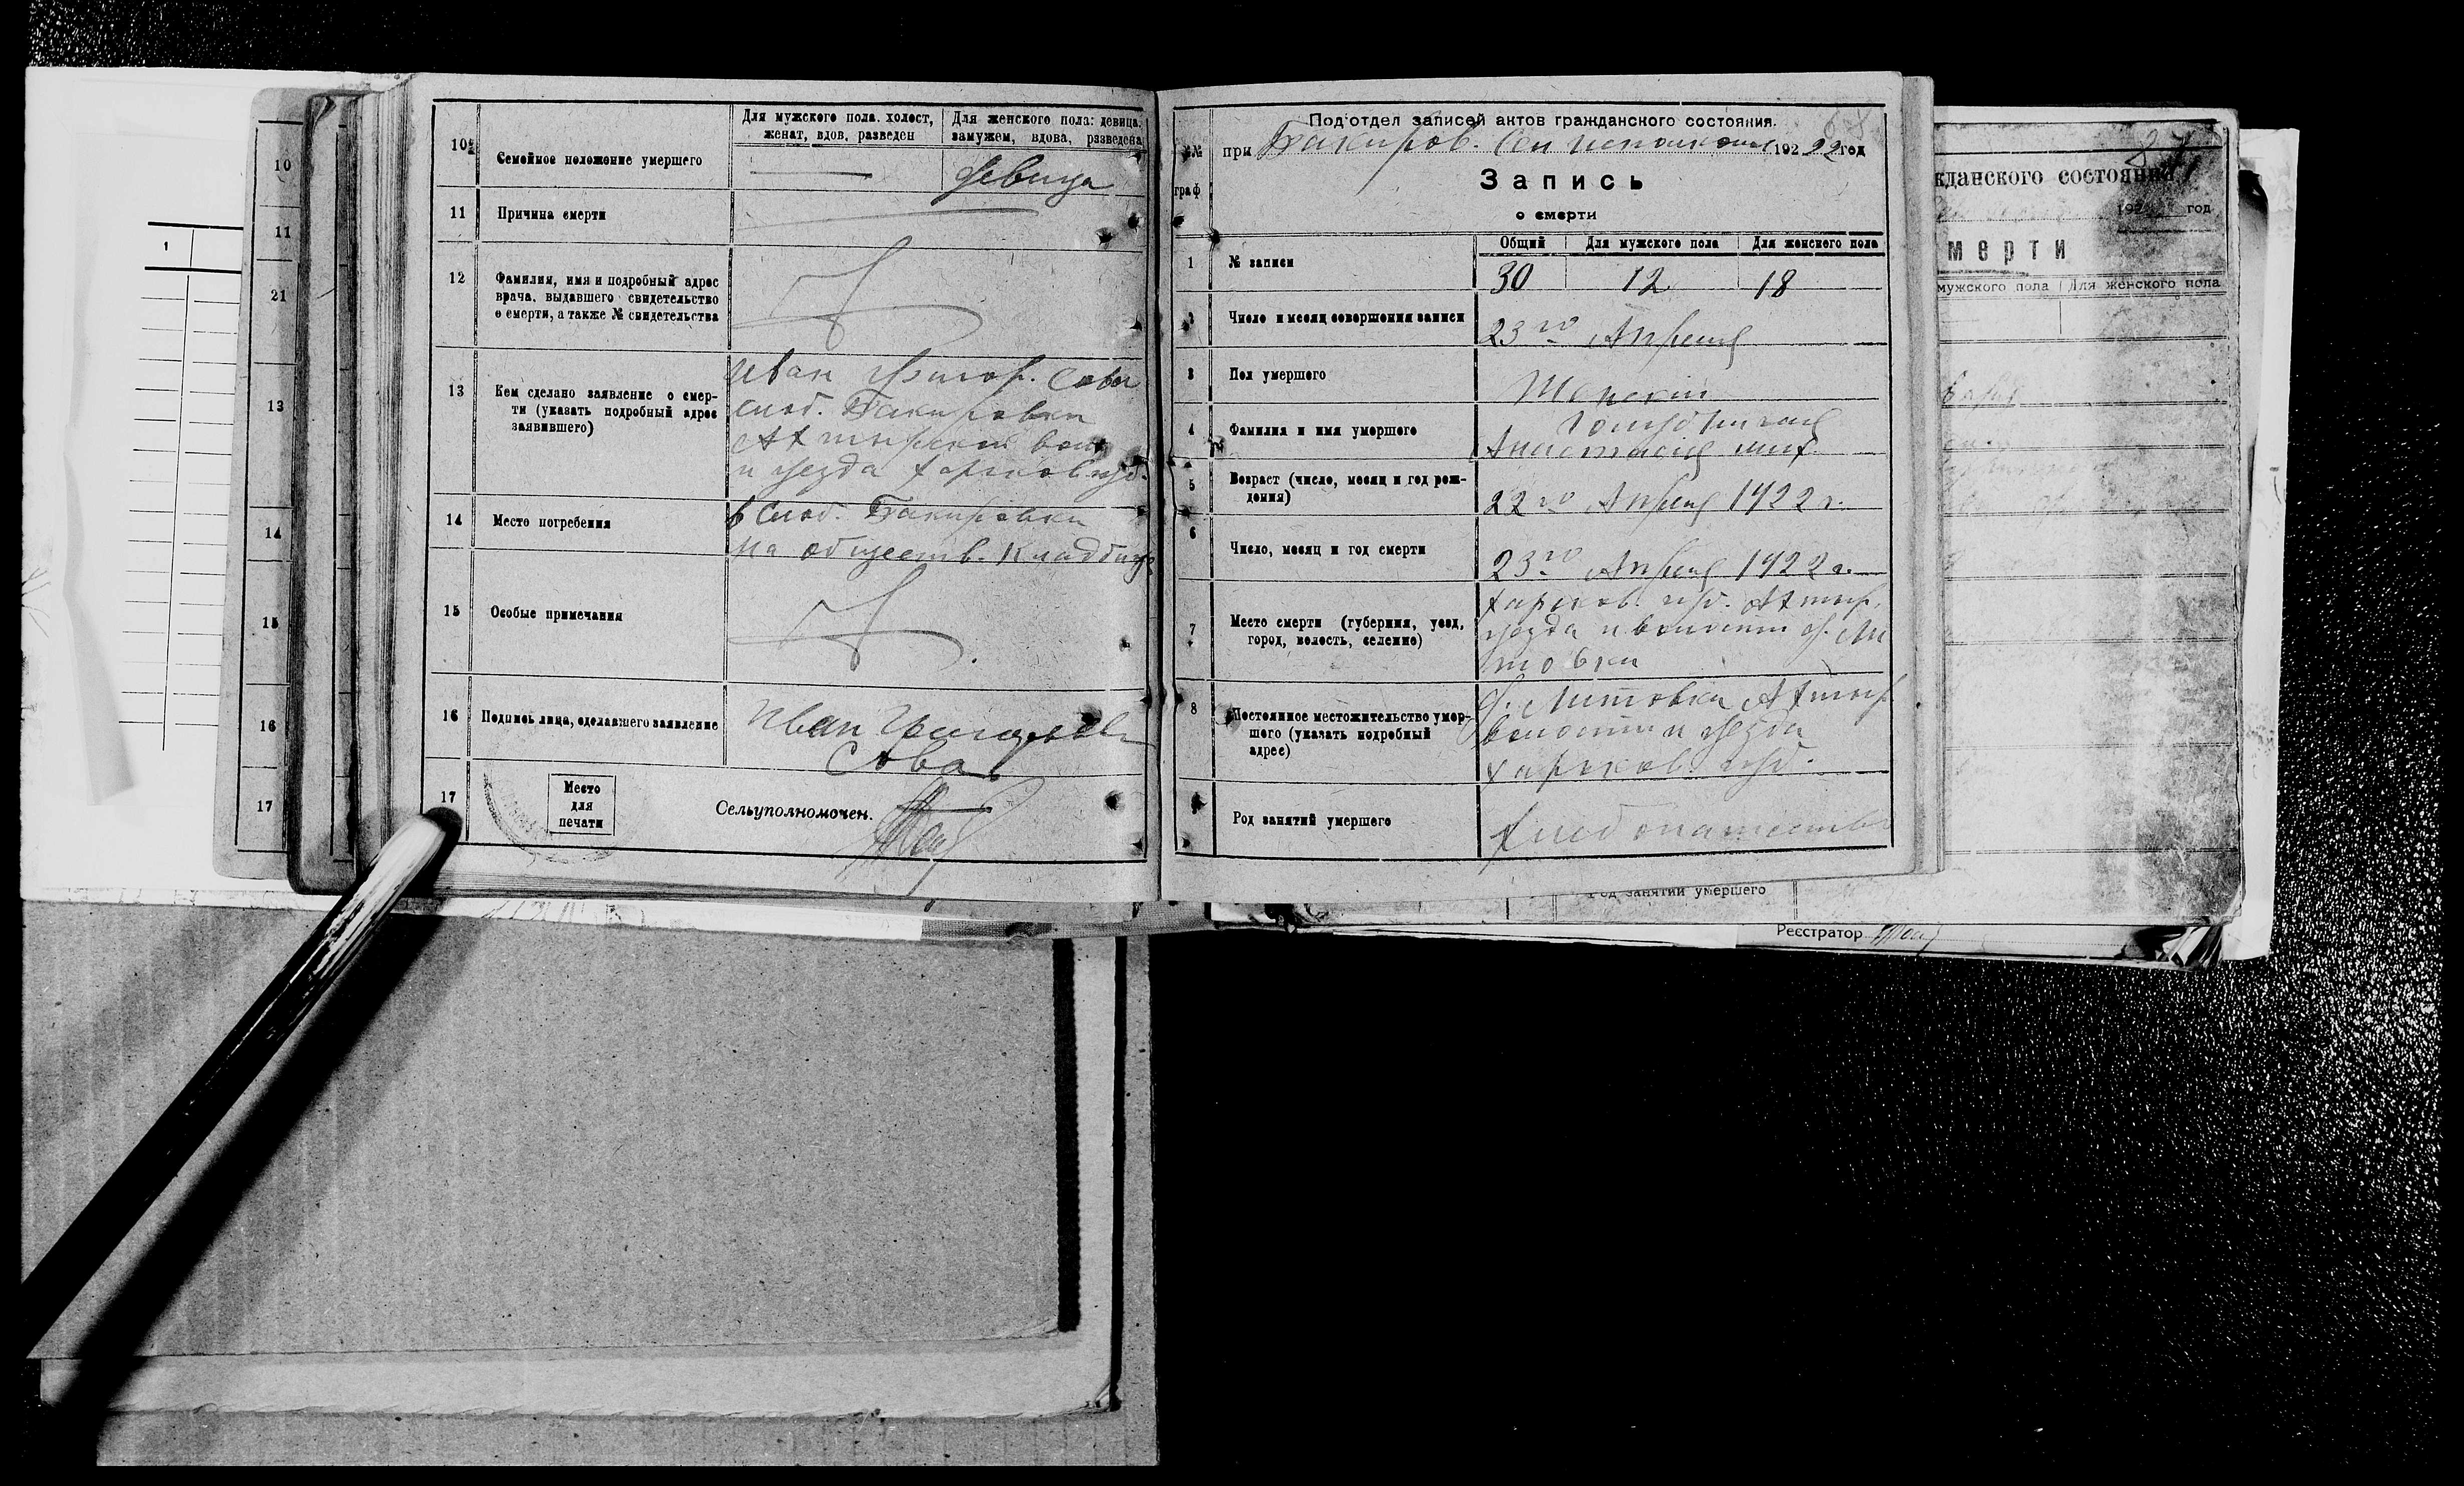 10
Семейное положение умершего
Для мужского пола. холост,
женат, вдов, разведен
Для женского пола: девица,
замужем, вдова, разведена
девица
11
Причина смерти
12
Фамилия, имя и подробный адрес
врача, выдавшего свидетельство
о смерти, а также № свидетельства
13
Кем сделано заявление о смер-
ти (указать подробный адрес
заявившего)
Иван Григор. Сова
слоб. Бакировки
Ахтырской вол.
и уезда Харьков губ.
14
Место погребения
в слоб. Бакировки
на обществ. кладбище
15
Особые примечания
16
Подпись лица, сделавшего заявление
Иван Григорьев
Сова
17
Место
для
печати
Сельуполномочен.
Под'отдел записей актов гражданского состояния.
при Бакиров. Сел 1922 год
№№
граф
Запись
о смерти
1
№ записи
Общий
Для мужского пола
Для женского пола
30
12
18
Число и месяц совершения записи
23го Апреля
3
Пол умершего
Женский
4
Фамилия и имя умершего
Анастасия Мих.
5
Возраст (число, месяц и год рож-
дения)
22го Апреля 1922 г.
6
Число, месяц и год смерти
23го Апреля 1922 г.
7
Место смерти (губерния, уезд,
город, волость, селение)
Харьков. губ. Ахтыр.
уезда и волости д. Ли
товки
8
Постоянное местожительство умер-
шего (указать подробный
адрес)
д. Литовки Ахтыр
волости и уезда
Харьков. губ.
Род занятий умершего
Хлебопашество
10
11
21
13
14
15
16
17
1
жданского состояния
192 год
мерти
мужского пола
Для женского пола
Род занятий умершего
Реєстратор